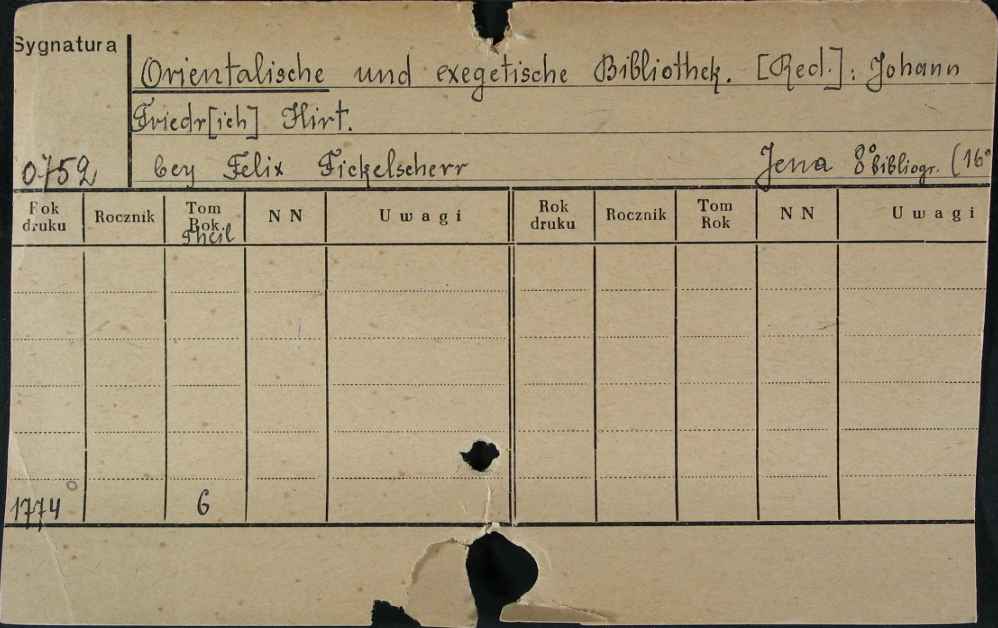 Sygnatura
Orientalische und exegetische Bibliothek. [Red.]: Johann
Friedr[ich] Hirt.
0752 bey Felix Fickelscherr Jena 8° bibliogr. (16°
Rok druku Rocznik Tom Rok. Theil N N Uwagi Rok druku Rocznik Tom Rok N N Uwagi
1774 6